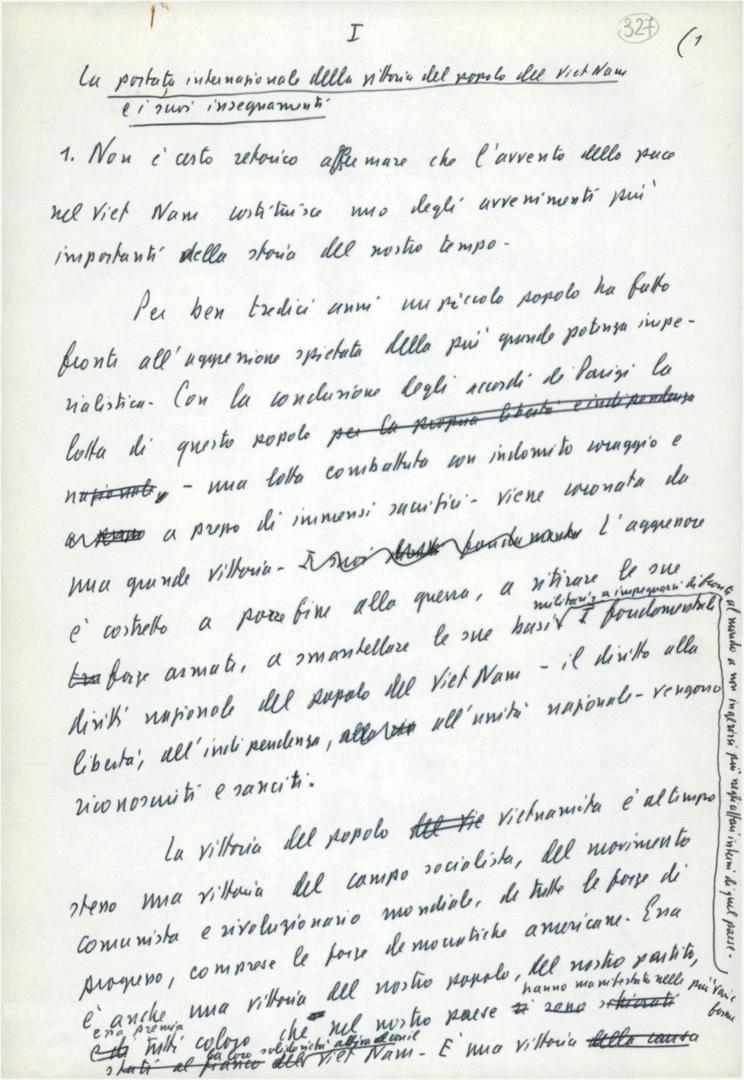 I
327
(1
La portata internazionale della vittoria del popolo del Viet Nam
e i suoi insegnamenti
1. Non è certo retorico affermare che l'avvento della pace
nel Viet Nam costituisce uno degli avvenimenti più
importanti della storia del nostro tempo.
Per ben tredici anni un piccolo popolo ha fatto
fronte all'aggressione spietata della più grande potenza impe-
rialistica. Con la conclusione degli accordi di Parigi la
lotta di questo popolo per la propria libertà e indipendenza
nazionale, - una lotta combattuta con indomito coraggio e
a prezzo di immensi sacrifici - viene coronata da
una grande vittoria. I suoi fondamentali L'aggressore
è costretto a porre fine alla guerra, a ritirare le sue
forze armate, a smantellare le sue basi militari, a impegnarsi di fronte al mondo a non ingerirsi più negli affari interni di quel paese. I fondamentali
diritti nazionale del popolo del Viet Nam - il diritto alla
libertà, all'indipendenza, all'unità nazionale - vengono
riconosciuti e sanciti.
La vittoria del popolo del Vie vietnamita è al tempo
stesso una vittoria del campo socialista, del movimento
comunista e rivoluzionario mondiale, di tutte le forze di
progresso, comprese le forze democratiche americane. Essa
è anche una vittoria del nostro popolo, del nostro partito,
essa premia tutti coloro che nel nostro paese hanno manifestato nelle più varie forme si sono schierati
la loro solidarietà
stati al fianco del Viet Nam. È una vittoria della causa